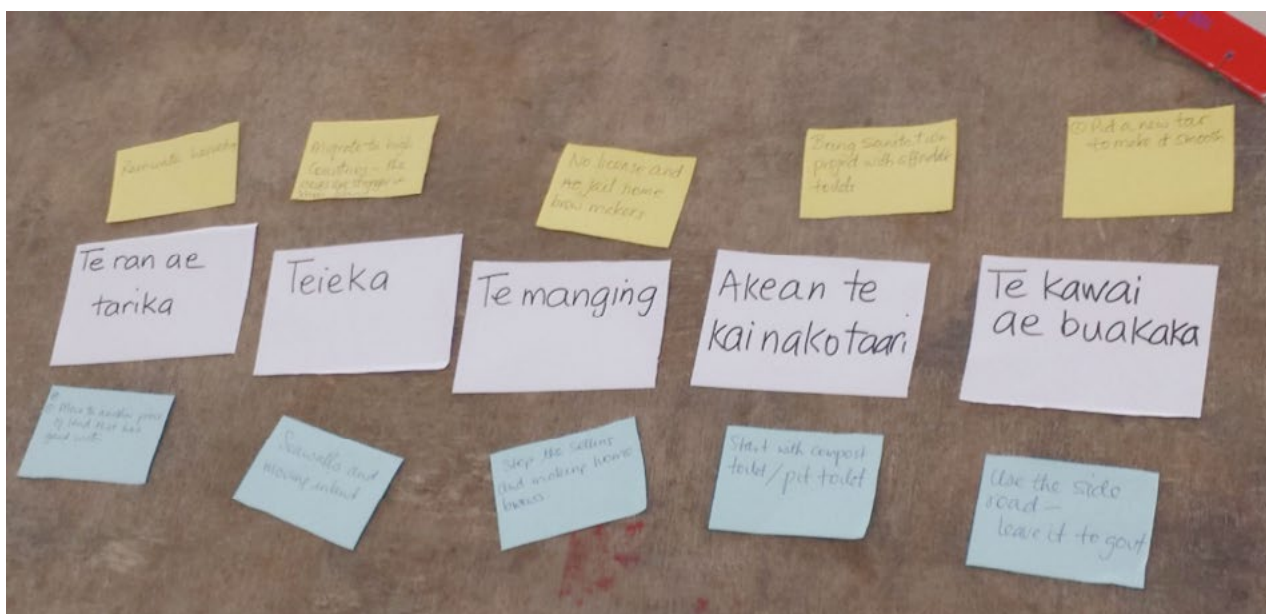 Renovate
Migrate to high
Countries - the
No license and
jail home
brew makers
Bring sanitation
project with affordable
toilets
① Put a new tar
to make it smooth
Te ran ae
tarika
Teieka
Te manging
Akean te
kai nako taari
Te kawai
ae buakaka
① Move to another piece
of land that has
good water
Seawalls and
moving inland
Stop the selling
and making home
brews
Start with compost
toilet/pit toilet
Use the side
road -
leave it to govt